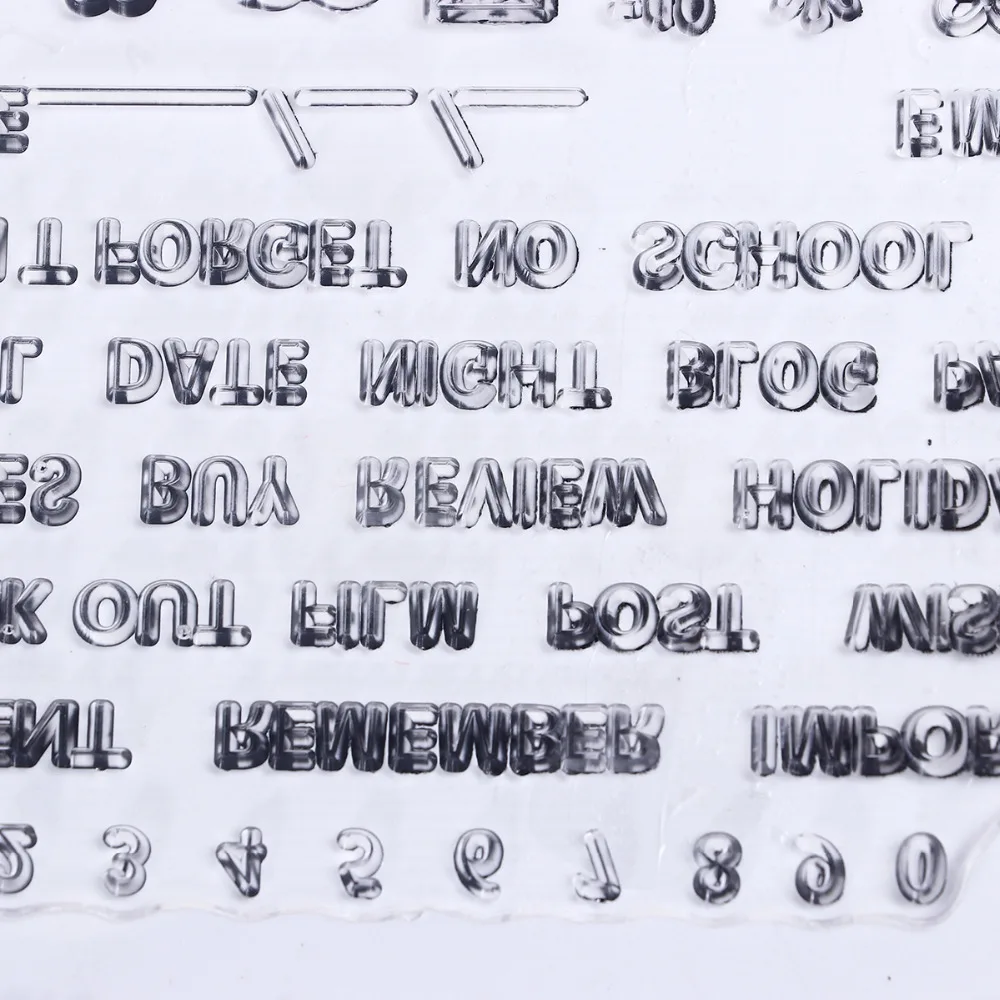 FORGET NO SCHOOL
DATE NIGHT BLOG
BUY REVIEW
OUT FILM POST
REMEMBER
2 3 4 5 6 7 8 9 0